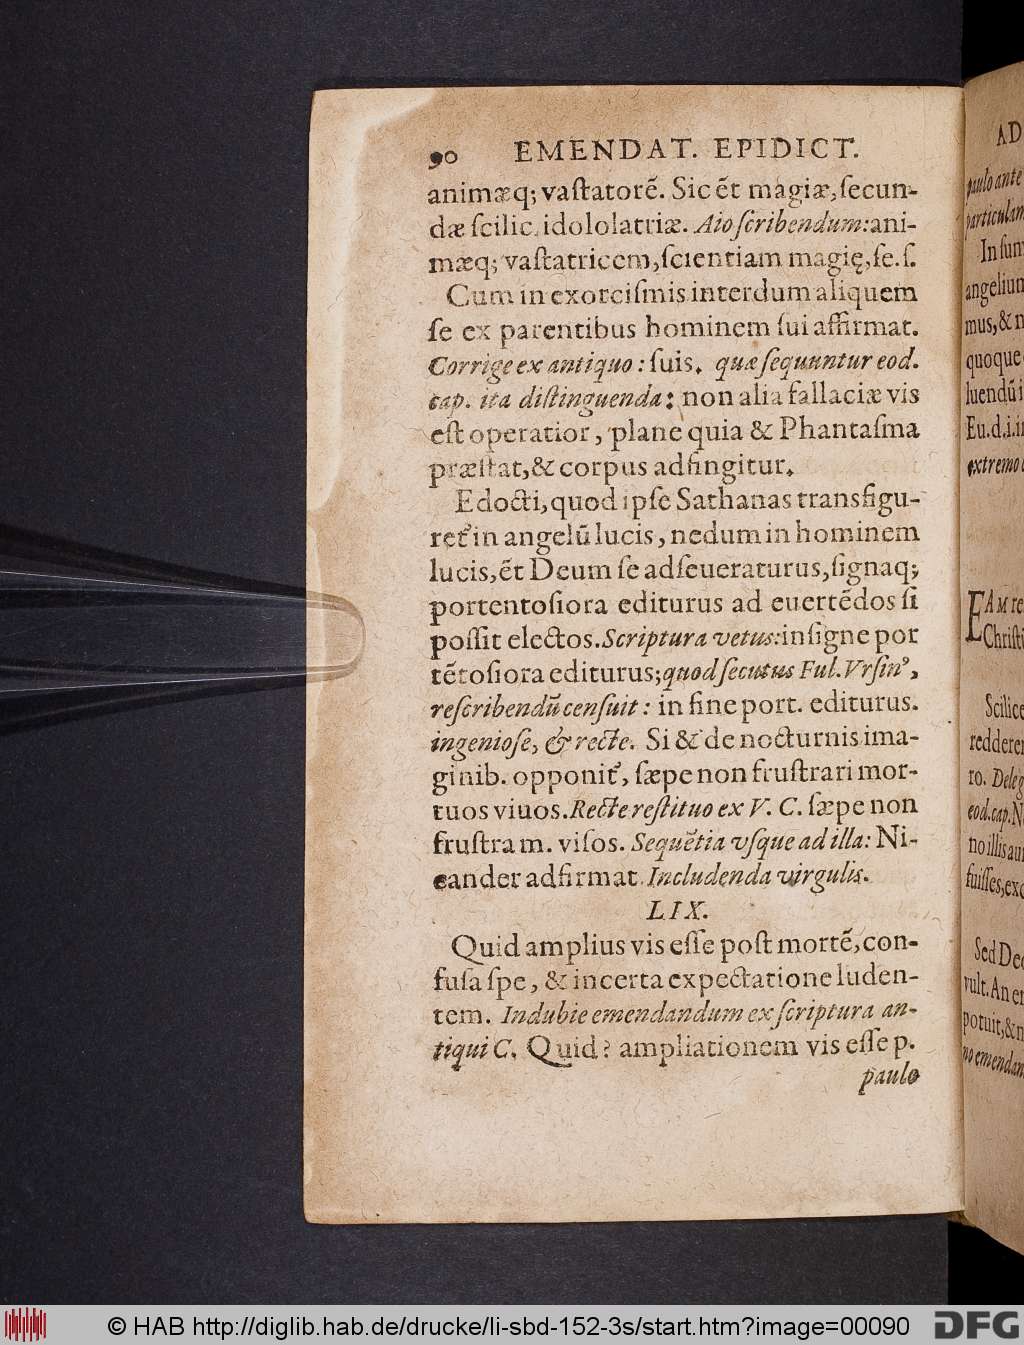 90 EMENDAT. EPIDICT.
animæq; vaſtatorē. Sic ēt magiæ, ſecun-
dæ ſcilic. idololatriæ. Aio ſcribendum: ani-
mæq; vaſtatricem, ſcientiam magię, ſe. ſ.
Cum in exorciſmis interdum aliquem
ſe ex parentibus hominem ſui affirmat.
Corrige ex antiquo: ſuis. quæ ſequuntur eod.
cap. ita diſtinguenda: non alia fallaciæ vis
eſt operatior, plane quia & Phantaſma
præſtat, & corpus adfingitur.
Edocti, quod ipſe Sathanas transfigu-
ret᷑ in angelū lucis, nedum in hominem
lucis, ēt Deum ſe adſeueraturus, ſignaq;
portentoſiora editurus ad euertēdos ſi
poſſit electos. Scriptura vetus: inſigne por
tētoſiora editurus; quod ſecutus Ful. Vrſin⁹,
reſcribendū cenſuit: in fine port. editurus.
ingenioſe, & recte. Si & de nocturnis ima-
ginib. opponit᷑, ſæpe non fruſtrari mor-
tuos viuos. Recte reſtituo ex V. C. ſæpe non
fruſtra m. viſos. Sequētia vſque ad illa: Ni-
cander adfirmat. Includenda virgulis.
LIX.
Quid amplius vis eſſe poſt mortē, con-
fuſa ſpe, & incerta expectatione luden-
tem. Indubie emendandum ex ſcriptura an-
tiqui C. Quid? ampliationem vis eſſe p.
paulo
AD
paulo ante
particulam
In ſun
angelium
mus, & n
quoque
luendū i
Eu. d. i. in
extremo
EAM re
Chriſt
Scilice
redderen
ro. Deleg
eod. cap. N
no illis au
fuiſſes, exc
Sed Dec
vult. An en
potuit, & n
no emendan
© HAB http://diglib.hab.de/drucke/li-sbd-152-3s/start.htm?image=00090
DFG